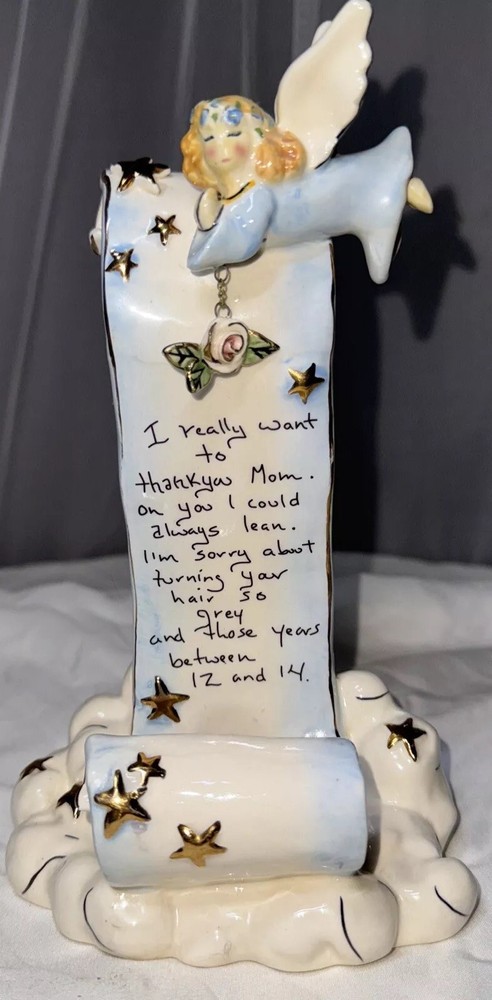 I really want
to
thankyou Mom.
on you I could
always lean.
I'm sorry about
turning your
hair so
grey
and those years
between
12 and 14.